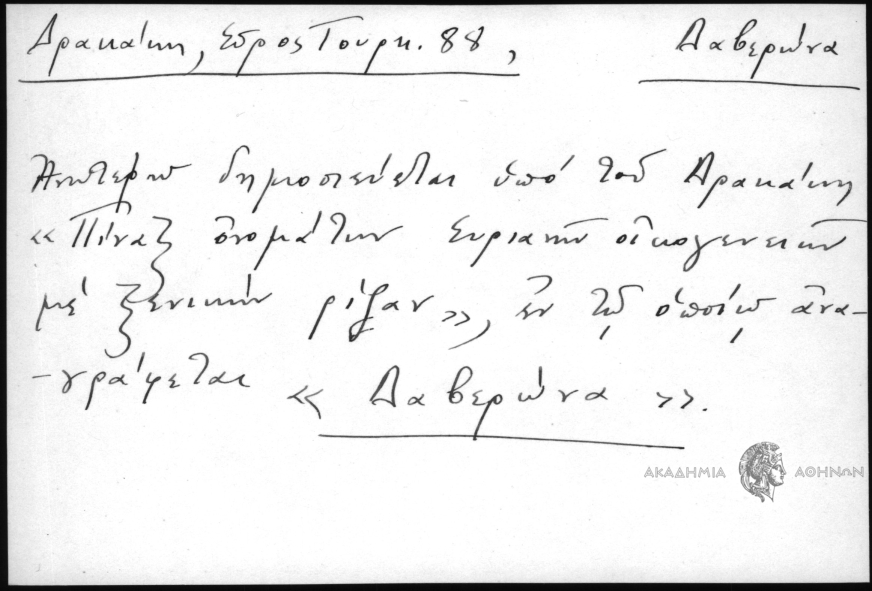 Δρακάκη, Σύρος Τουρκ. 88, Δαβερώνα
Ἀνωτέρω δημοσιεύεται ὑπό τοῦ Δρακάκη
«Πίναξ ὀνομάτων Συριανῶν οἰκογενειῶν
μέ ξενικήν ρίζαν», ἐν τῷ ὁποίῳ ἀνα-
-γράφεται «Δαβερώνα».
ΑΚΑΔΗΜΙΑ ΑΘΗΝΩΝ